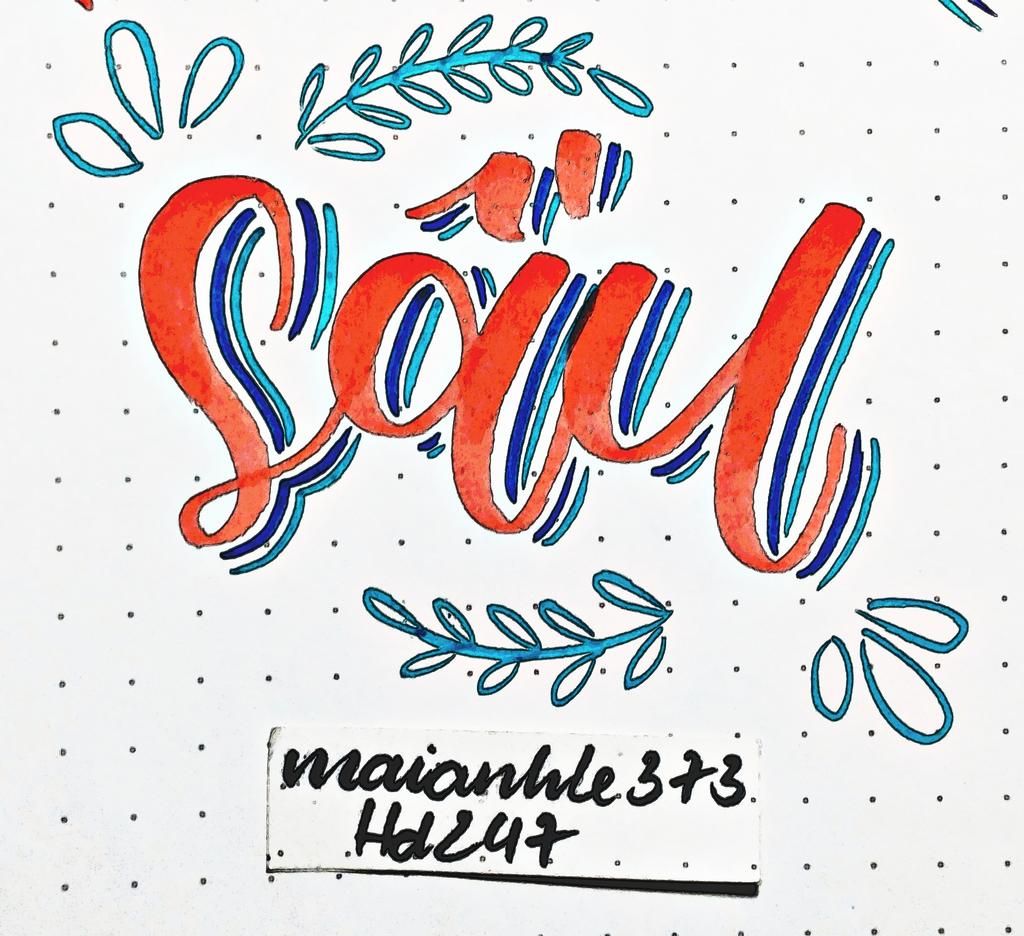 Sấu
maianhle373
Hd247